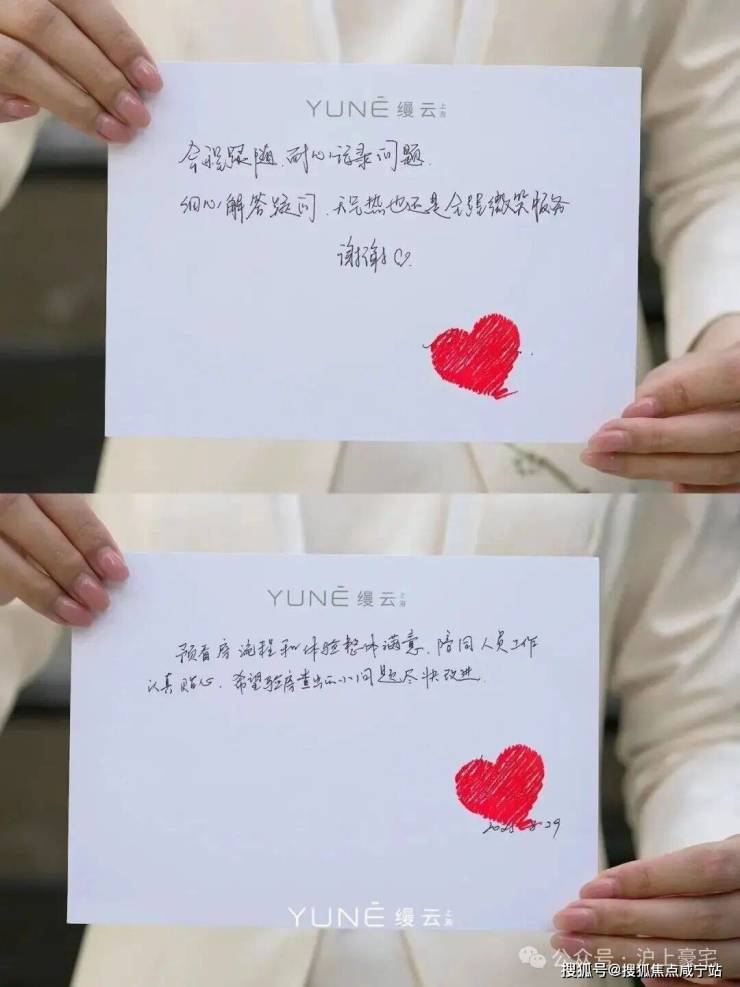 YUNĒ 缦云上海
全程跟随、耐心记录问题.
细心解答疑问、天气热也还是全程微笑服务
谢谢♡.
YUNĒ 缦云上海
预看房流程和体验整体满意、陪同人员工作
认真贴心、希望验房查出的小问题尽快改进.
2025-8-29
YUNĒ 缦云上海
公众号·沪上豪宅
搜狐号@搜狐焦点咸宁站